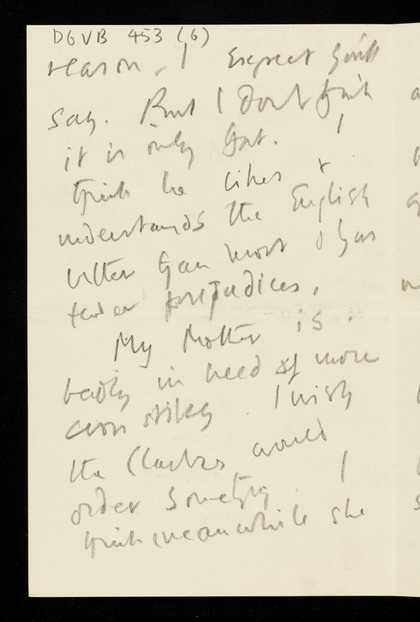 DGVB 453 (6)
reason, I expect you'll
say. But I don't think
it is only that. I
think he likes &
understands the English
better than most & has
fewer prejudices.
My Mother is
badly in need of more
cross stitch. I wish
the would
order something. I
think meanwhile she